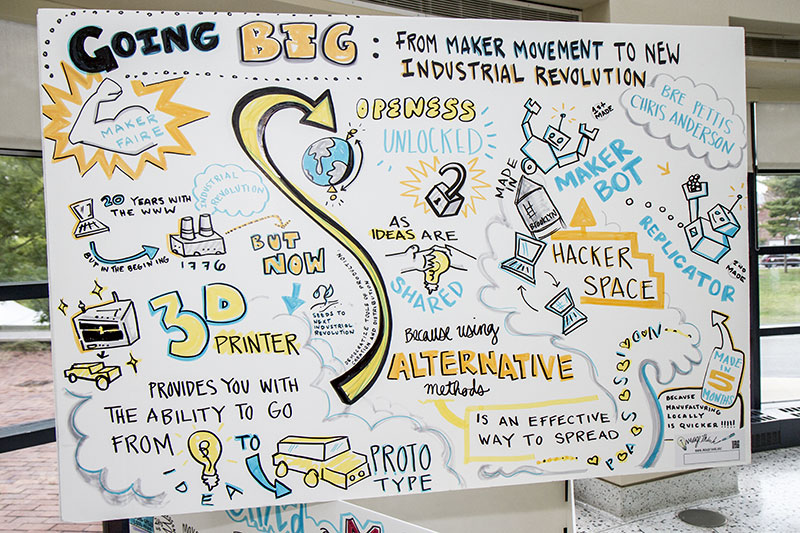 GOING BIG:
FROM MAKER MOVEMENT TO NEW
INDUSTRIAL REVOLUTION
MAKER
FAIRE
20 YEARS WITH
THE WWW
BUT IN THE BEGINING
INDUSTRIAL
REVOLUTION
1776
BUT
NOW
SEEDS TO
NEXT
INDUSTRIAL
REVOLUTION
DEMOCRATIZE TOOLS OF PRODUCTION
CREATION AND DISTRIBUTION
3D
PRINTER
PROVIDES YOU WITH
THE ABILITY TO GO
FROM
IDEA
TO
PROTO
TYPE
OPENESS
UNLOCKED
AS
IDEAS ARE
SHARED
BECAUSE USING
ALTERNATIVE
methods
IS AN EFFECTIVE
WAY TO SPREAD
PASSION
1st
MADE
MADE IN
BROOKLYN
MAKER
BOT
BRE PETTIS
CHRIS ANDERSON
HACKER
SPACE
REPLICATOR
2ND
MADE
MADE
IN
5
MONTHS
BECAUSE
MANUFACTURING
LOCALLY
IS QUICKER !!!!!